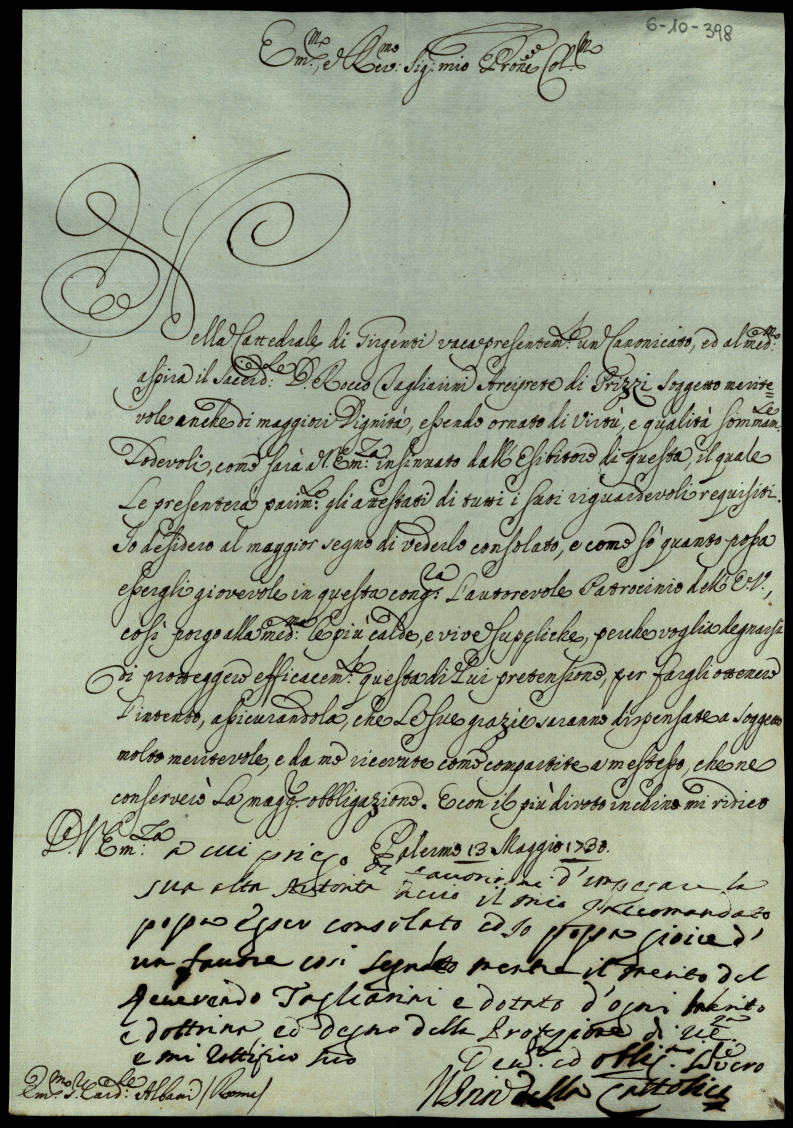 6-10-398
Em.mo, e Rev.mo Sig.r mio P.rone Col.mo
Nella Cattedrale di Girgenti vaca presentem.te un Canonicato, ed al med.mo
aspira il Sacerd.le D. Rocco Tagliarini Arciprete di Prizzi soggetto merite=
vole anche di maggiori Dignità, essendo ornato di Virtù, e qualità sommam.te
Lodevoli, come sarà a V. Em.za insinuato dall'Esibitore di questa, il quale
Le presenterà parim.te gli attestati di tutti i suoi riguardevoli requisiti.
Io desidero al maggior segno di vederlo consolato, e come sò quanto possa
essergli giovevole in questa cong.ra l'autorevole Patrocinio dell'E.V.,
così porgo alla med.ma le più calde, e vive suppliche, perche voglia degnarsi
di proteggere efficacem.te questa di Lui pretensione, per fargli ottenere
l'intento, assicurandola, che Le sue grazie saranno dispensate a soggetto
molto meritevole, e da me ricevute come compartite a me stesso, che ne
conserverò La magg.r obbligazione. E con il più divoto inchino mi ridico
Di V. Em.za Palermo 13 Maggio 1730.
a cui priego di favorirmi d'impegare la
sua alta Autorita acciò il mio raccomandato
possa esser consolato ed Io possa gioire d'
un favore cosi segnalato mentre il merito del
Reverendo Tagliarini e dotato d'ogni merito
e dottrina ed degno della Protezione di
e mi ratifico suo
Dev.mo ed obblig.mo Servo vero
Prin della Cattolica
Em.mo S. Card.le Albani (Roma)